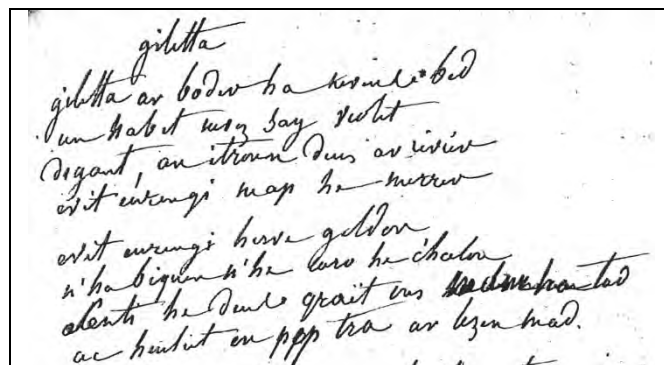 giletta
giletta ar boder ha bed
un habit nevez say violet
digant, an itroun deus ar rivier
evit eurengi map he merrer
evit eurengi herve geldon
n'ha biquen n'he caro he chalon
he deule grait eus tad
ac heuliit en pep tra ar lezen mad.